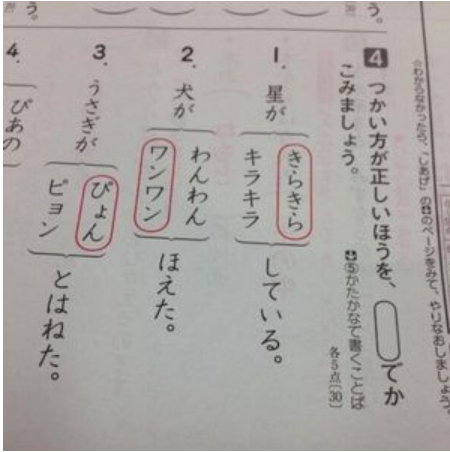 う。
☆わからなかったら、「しあげ」の✚のページをみて、やりなおしましょう。
4 つかい方が正しいほうを、◯でか
こみましょう。
✚⑤かたかなで書くことば
各5点〔30〕
1. 星が
きらきら
キラキラ
している。
2. 犬が
わんわん
ワンワン
ほえた。
3. うさぎが
ぴょん
ピョン
とはねた。
4. ぴあの
う。